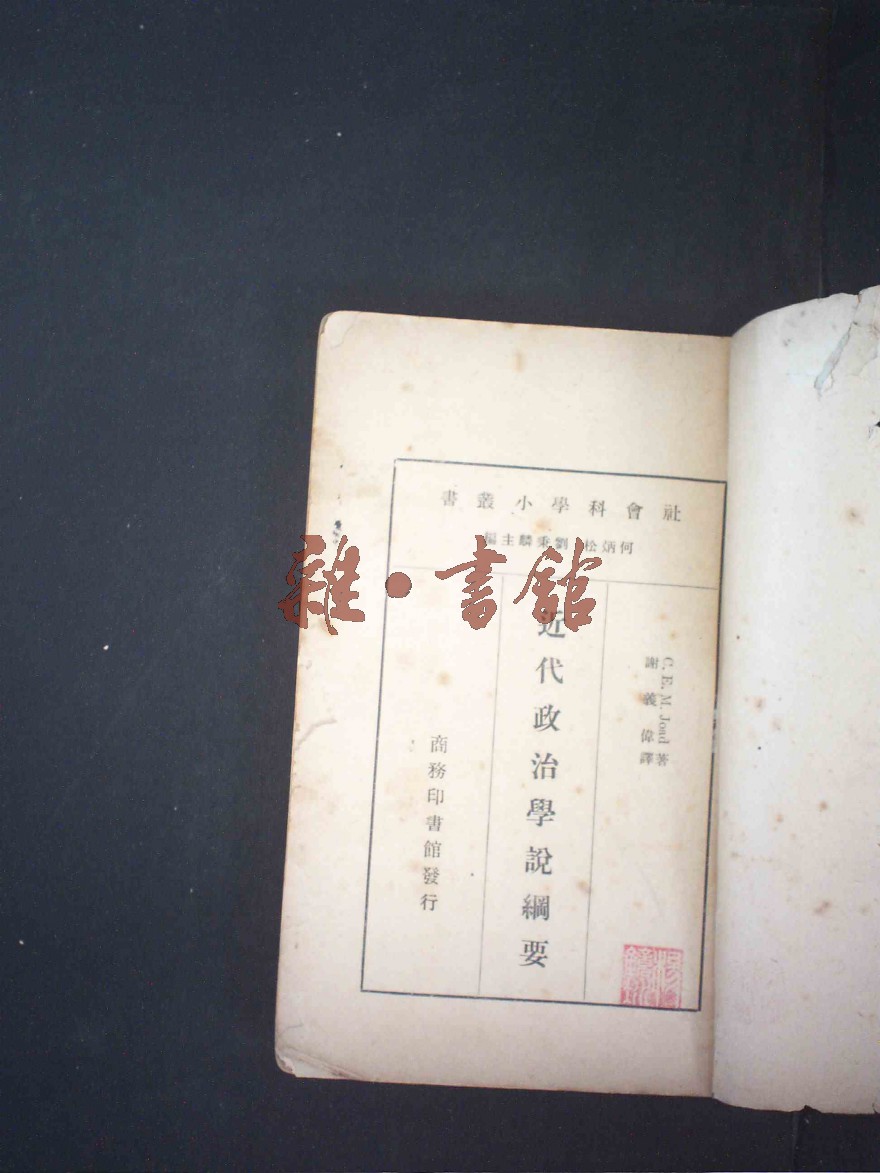 社會科學小叢書
何炳松 劉秉麟主編
C. E. M. Joad 著
謝義偉譯
近代政治學說綱要
商務印書館發行
雜·書館